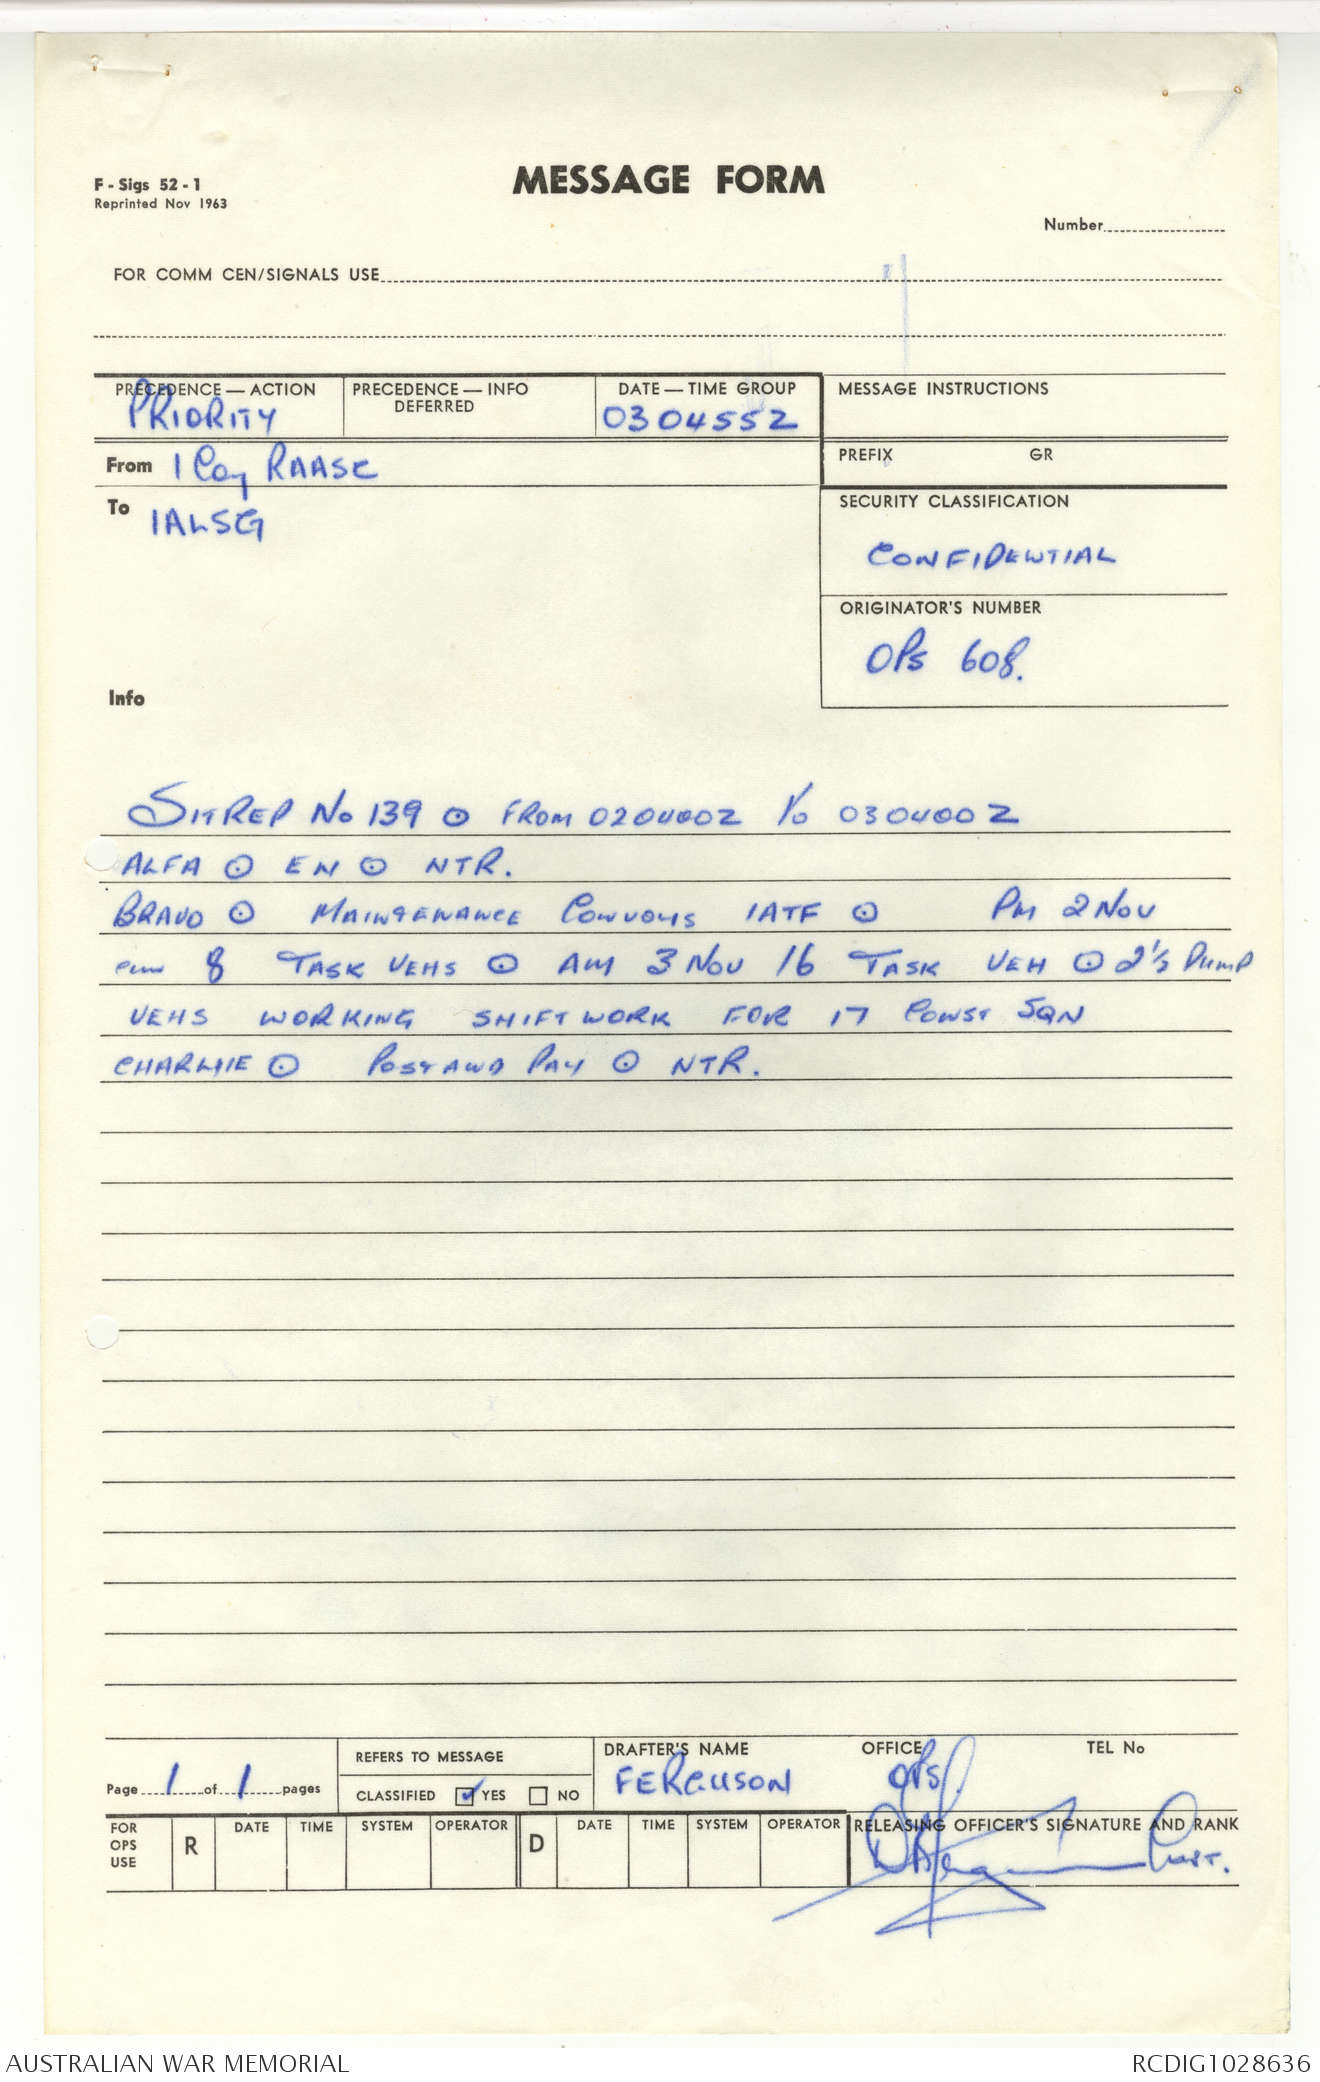 F - Sigs 52 - 1
Reprinted Nov 1963
MESSAGE FORM
Number
FOR COMM CEN/SIGNALS USE
PRECEDENCE — ACTION
PRIORITY
PRECEDENCE — INFO
DEFERRED
DATE — TIME GROUP
030455Z
MESSAGE INSTRUCTIONS
From 1 Coy RAASC
PREFIX GR
To 1ALSG
SECURITY CLASSIFICATION
CONFIDENTIAL
ORIGINATOR'S NUMBER
OPS 608.
Info
SITREP No 139 ⊙ FROM 020400Z TO 030400Z
ALFA ⊙ EN ⊙ NTR.
BRAVO ⊙ MAINTENANCE CONVOYS 1ATF ⊙ PM 2 NOV
8 TASK VEHS ⊙ AM 3 NOV 16 TASK VEH ⊙ 2½ DUMP
VEHS WORKING SHIFT WORK FOR 17 CONST SQN
CHARLIE ⊙ POST AND PAY ⊙ NTR.
Page 1 of 1 pages
REFERS TO MESSAGE
CLASSIFIED ☑ YES ☐ NO
DRAFTER'S NAME
FERGUSON
OFFICE
OPS
TEL No
FOR OPS USE
R DATE TIME SYSTEM OPERATOR
D DATE TIME SYSTEM OPERATOR
RELEASING OFFICER'S SIGNATURE AND RANK
AUSTRALIAN WAR MEMORIAL
RCDIG1028636